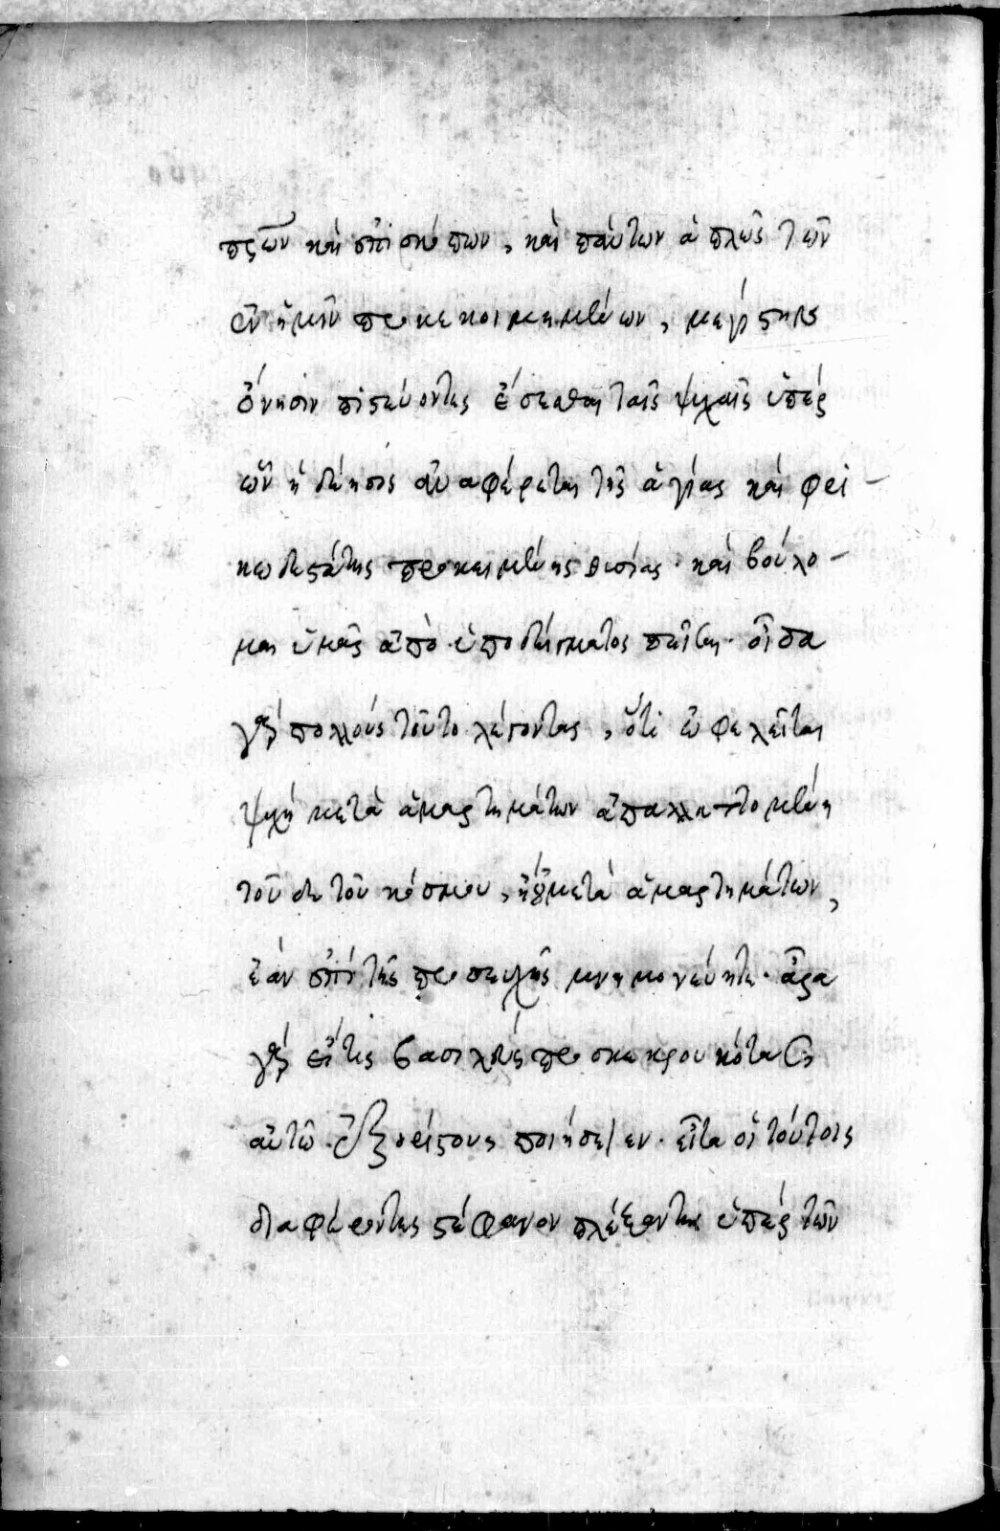 πρ̅ων καὶ ἐπισκόπων, καὶ πάντων ἁπλῶς τῶν
ἐν ἡμῖν προκεκοιμημένων, μεγίστην
ὄνησιν πιστεύοντες ἔσεσθαι ταῖς ψυχαῖς ὑπὲρ
ὧν ἡ δέησις ἀναφέρεται τῆς ἁγίας καὶ φρι-
κωδεστάτης προκειμένης θυσίας· καὶ βούλο-
μαι ὑμᾶς ἀπὸ ὑποδείγματος πεῖσαι· οἶδα
γὰρ πολλοὺς τοῦτο λέγοντας, ὅτι ὠφελεῖται
ψυχὴ μετὰ ἁμαρτημάτων ἀπαλλαττομένη
τοῦδε τοῦ κόσμου, ἢ οὐ μετὰ ἁμαρτημάτων,
ἐὰν ἐπὶ τῆς προσευχῆς μνημονεύητε· ἆρα
γὰρ εἴ τις βασιλεὺς προσκεκρουκότας
αὐτῷ ἐξορίστους ποιήσειεν· εἶτα οἱ τούτοις
διαφέροντες στέφανον πλέξαντες ὑπὲρ τῶν